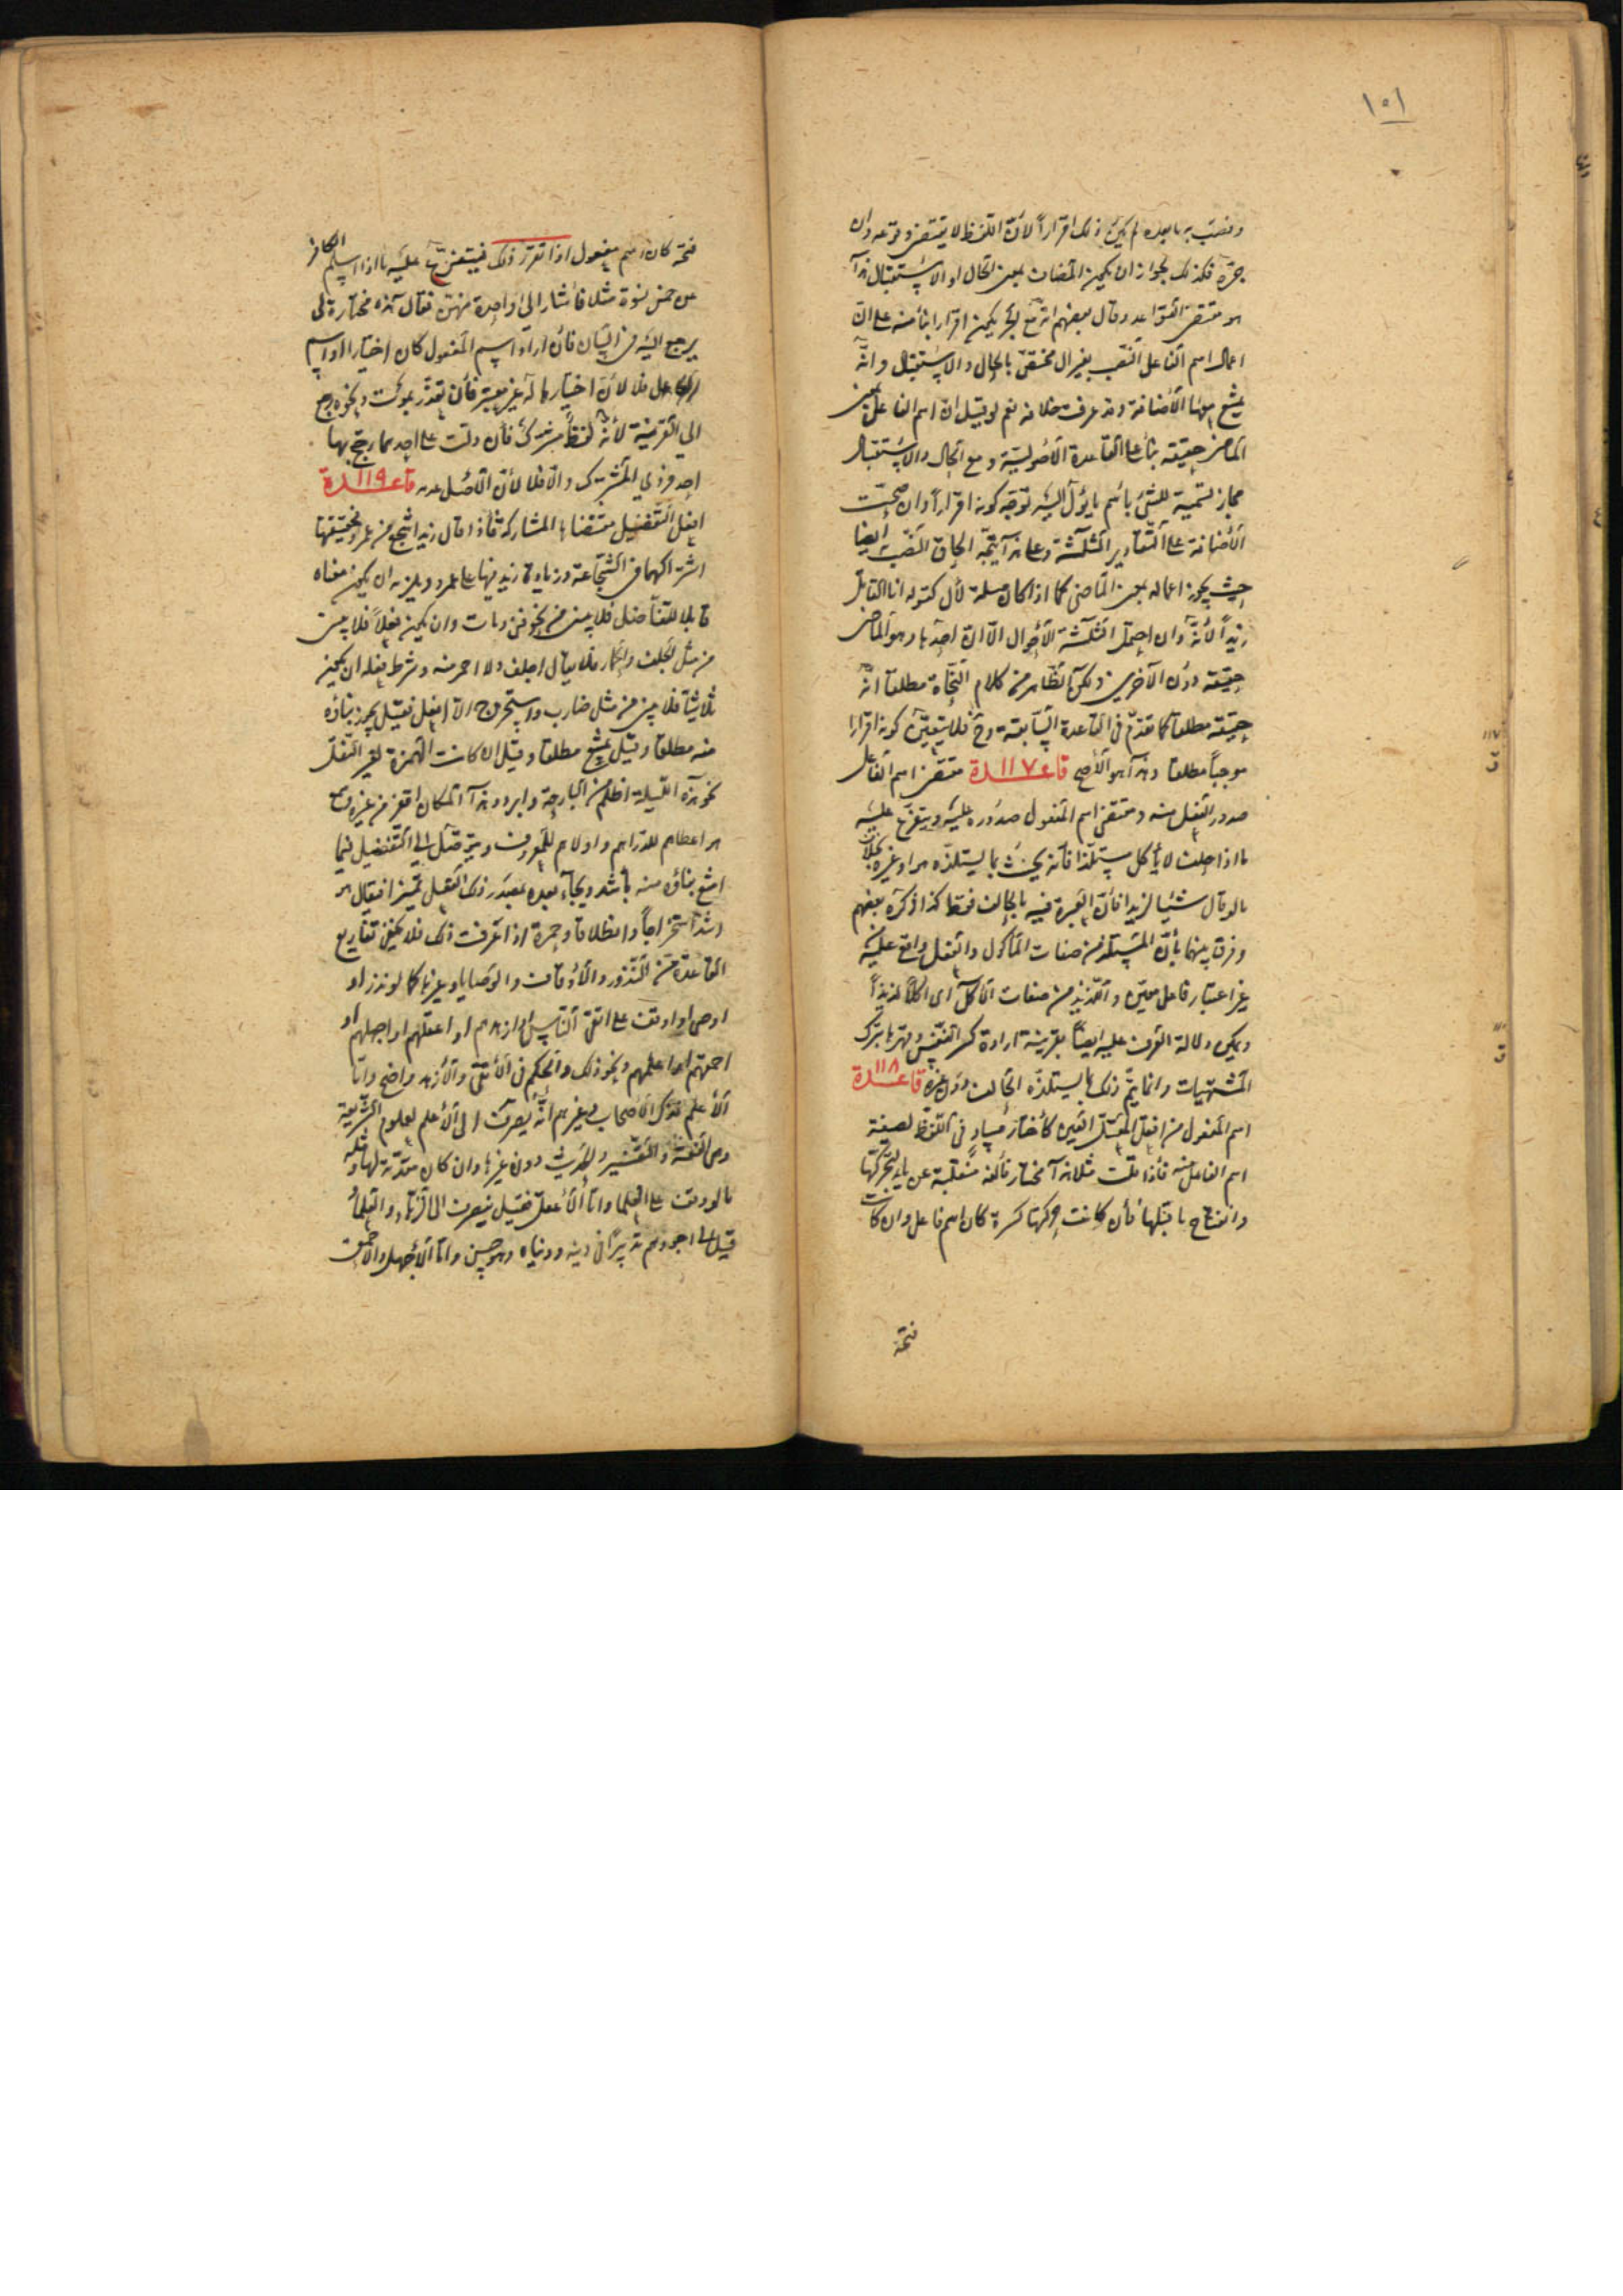 ١٥١
ونصب به ما بعده لم يكن ذلك اقراراً لأنّ اللفظ لا يقتضي وقوعه وان
جرّه فكذلك لجواز ان يكون المضاف بمعنى الحال او الاستقبال هذا
هو مقتضى القواعد وقال بعضهم انه مع الجر يكون اقرارا بناء منه على انّ
اعمال اسم الفاعل النّصب بغير ال مختصّ بالحال والاستقبال وانّه
يمتنع فيهما الأضافة وقد عرفت خلافه نعم لو قيل انّ اسم الفاعل بمعنى
الماضي حقيقة بناء على القاعدة الأصوليّة ومع الحال والاستقبال
مجاز تسمية للشئ باسم ما يؤل اليه توجّه كونه اقراراً وان صحّت
الأضافة على التّقادير الثّلثة وعلى هذا يتّجه الحاق النّصب ايضا
حيث يجوز اعماله بمعنى الماضي كما اذا كان صلة لأل كقوله انا القاتل
زيداً لأنّه وان احتمل الثّلثة الأحوال الّا انّ احدها وهو الماضي
حقيقة دون الآخرين ولكن الظّاهر من كلام النّحاة مطلقا انّه
حقيقة مطلقا كما تقدّم في القاعدة السّابقة وح فلا يتعيّن كونه اقرارا
موجباً مطلقا وهذا هو الأصح قاعدة ١١٧ مقتضى اسم الفاعل
صدور الفعل منه ومقتضى اسم المفعول صدوره عليه ويتفرّع عليه
ما اذا حلف لا يأكل مستلذا فانه يحنث بما يستلذّه هو او غيره بخلاف
ما لو قال شيئا لذيدا فأنّ العبرة فيه بالحالف فقط كذا ذكره بعضهم
وفرق بينهما بأنّ المستلذ من صفات المأكول والفعل واقع عليه من
غير اعتبار فاعل معيّن واللّذيذ من صفات الأكل اي اكلا لذيذاً
ويمكن دلالة العرف عليه ايضاً بقرينة ارادة كسر النّفس وقهرها بترك
المشتهيات وانما يتمّ ذلك بما يستلذّه الحالف دون غيره قاعدة ١١٨
اسم المفعول من افتعل المعتلّ العين كأختار مساو في اللّفظ لصيغة
اسم الفاعل منه فأذا قلت مثلا هذا مختار فألفه منقلبة عن ياء لتحركها
وانفتاح ما قبلها فأن كانت حركتها كسرة كان اسم فاعل وان كانت
فتحة
١١٧
ق
١١٨
ق
فتحة كان اسم مفعول اذا تقرّر ذلك فيتفرّع عليه ما اذا اسلم الكافر
عن خمس نسوة مثلا فأشار الى واحدة منهن فقال هذه مختارة لي
يرجع اليه في البيان فأن اراد اسم المفعول كان اختيارا او اسم
الفاعل فلا لأنّ اختيارها له غير معتبر فأن تعذّر بموت ونحوه رجع
الى القرينة لأنّه لفظ مشترك فأن دلّت على احدهما رجّح بها
احد فردي المشترك والّا فلا لأنّ الأصل عدمه قاعدة ١١٩
افعل التّفضيل مقتضاها المشاركة فأذا قال زيد اشجع من عمرو فحقيقتها
اشتراكهما في الشّجاعة وزيادة زيد فيها على عمرو ويلزمه ان يكون معناه
قابلا للتفاضل فلا يبنى من نحو فني ومات وان يكون فعلاً فلا يبنى
من مثل الجلف والحمار فلا يقال اجلف ولا احمر منه وشرط فعله ان يكون
ثلاثيّا فلا يبنى من مثل ضارب واستخرج الا افعل فقيل يجوز بناؤه
منه مطلقا وقيل يمتنع مطلقا وقيل ان كانت الهمزة لغير النّقل
نحو هذه اللّيلة اظلم من البارحة وابرد وهذا المكان اقفر من غيره وسمع
هو اعطاهم للدّراهم واولاهم للمعروف ويتوصّل الى التّفضيل فيما
امتنع بناؤه منه بأشد ويجاء بعده بمصدر ذلك الفعل تمييزا فيقال هو
اشدّ استخراجاً وانطلاقا وحمرة اذا عرفت ذلك فلا يخفى تفاريع
القاعدة من النّذور والأوقاف والوصايا وغيرها كما لو نذر او
اوصى او اوقف على اتقى النّاس او ازهدهم او اعقلهم او اجهلهم او
احمقهم او اعلمهم ونحو ذلك والحكم في الأتقى والأزهد واضح وامّا
الأعلم فذكر الأصحاب وغيرهم انّه يصرف الى الأعلم بعلوم الشّريعة
وهي الفقه والتّفسير والحديث دون غيرها وان كان مقدّمة لها ومثله
ما لو وقف على العلماء وامّا الأعقل فقيل ينصرف الى الزّهاد والعلماء
قيل الى اجودهم تدبيرًا في دينه ودنياه وهو حسن وامّا الأجهل والأحمق